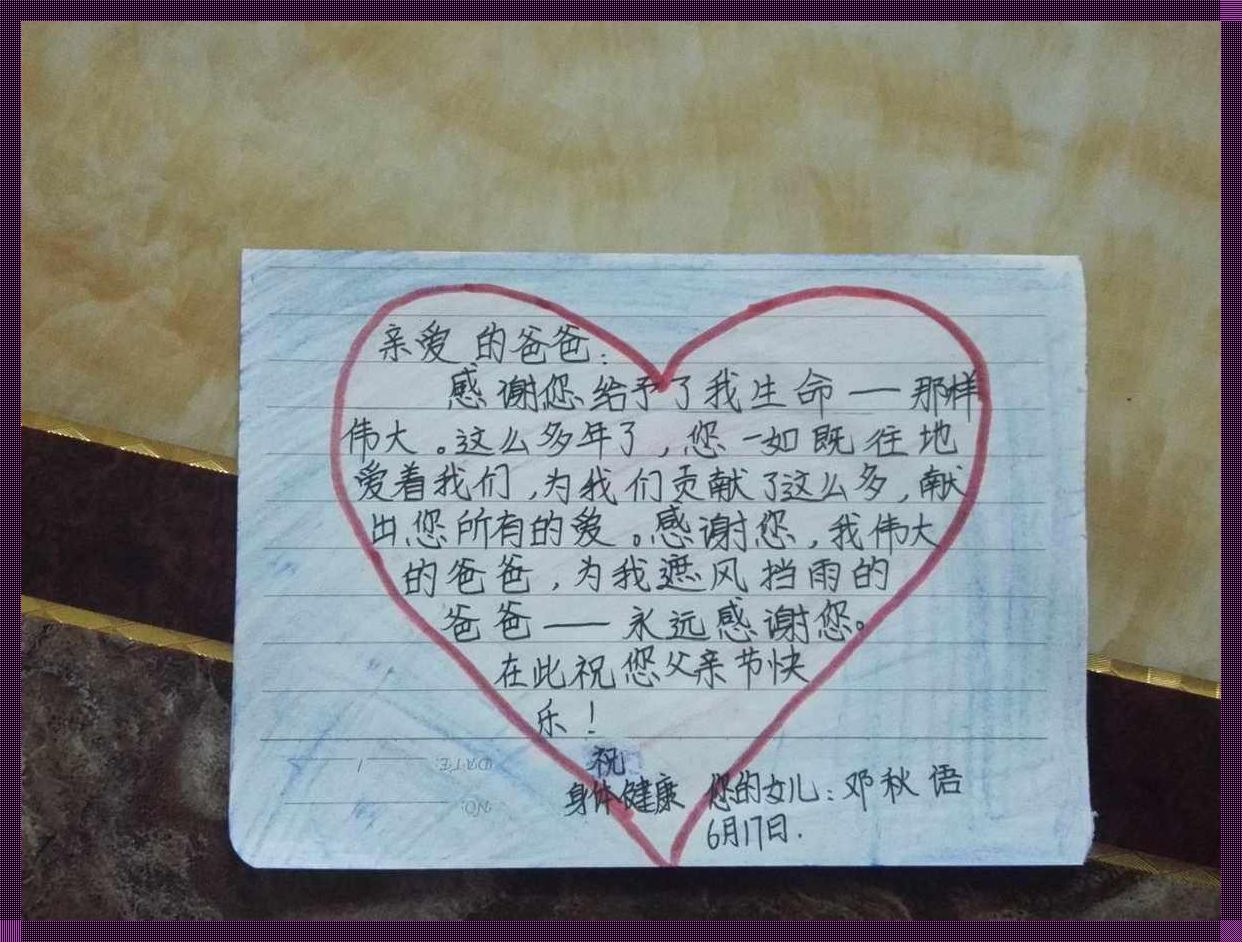 亲爱的爸爸：
感谢您给予了我生命——那样
伟大。这么多年了，您一如既往地
爱着我们，为我们贡献了这么多，献
出您所有的爱。感谢您，我伟大
的爸爸，为我遮风挡雨的
爸爸——永远感谢您。
在此祝您父亲节快
乐！
祝
身体健康
您的女儿：邓秋语
6月17日.
DATE:
NO: